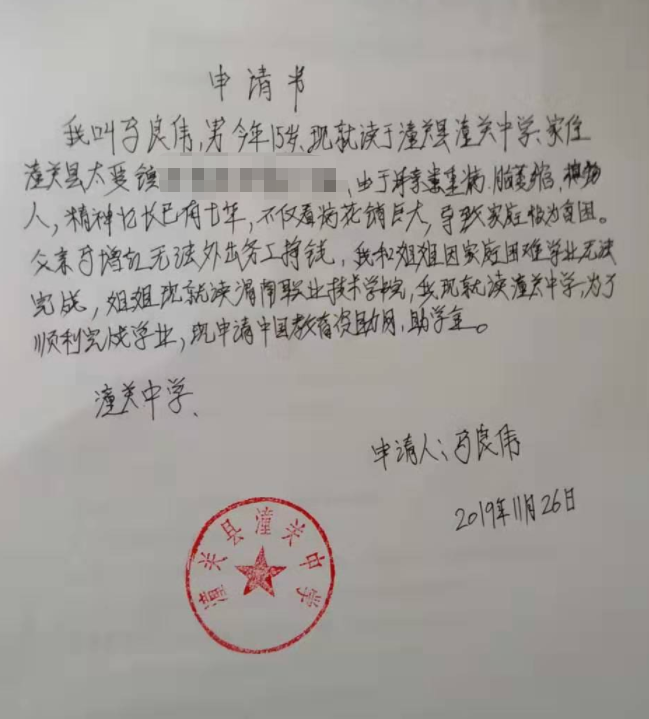 申请书
我叫马良伟,男今年15岁,现就读于潼关县潼关中学、家住
潼关县太要镇,由于母亲患重病.脑萎缩,植物
人,精神忆长已有七年,不仅看病花销巨大,导致家庭极为贫困。
父亲马增红无法外出务工挣钱,我和姐姐因家庭困难学业无法
完成,姐姐现就读渭南职业技术学院,我现就读潼关中学,为了
顺利完成学业,现申请中国教育资助网,助学金。
潼关中学、
申请人:马良伟
2019年11月26日
潼关县潼关中学